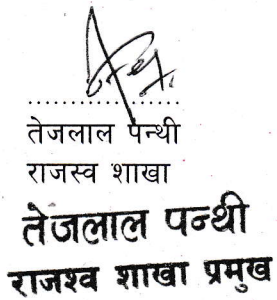 ....................
तेजलाल पन्थी
राजस्व शाखा
तेजलाल पन्थी
राजश्व शाखा प्रमुख